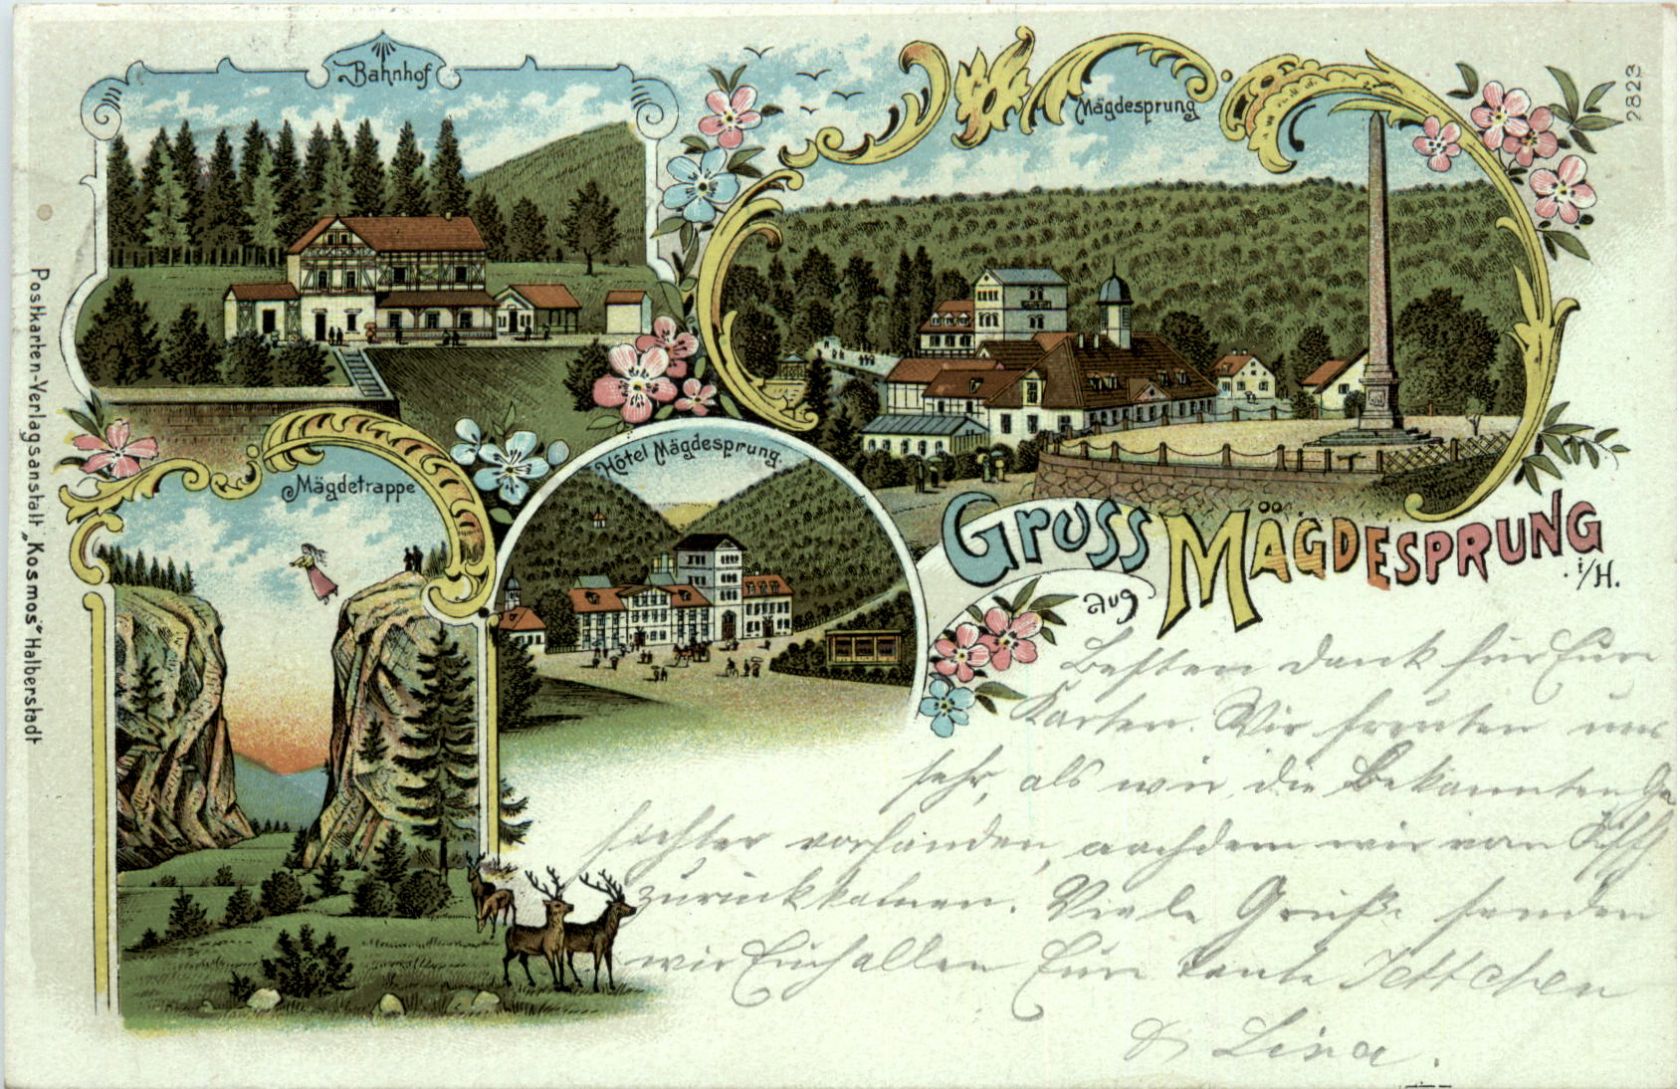 Bahnhof
Mägdesprung
2823
Postkarten-Verlagsanstalt „Kosmos“ Halberstadt
Mägdetrappe
Hôtel Mägdesprung.
GRUSS
aus
MÄGDESPRUNG
i/H.
Besten Dank für Eure
Karten. Wir freuten uns
sehr, als wir die Bekannten Ge
sichter vorfanden, nachdem wir vom
zurückkamen. Viele Grüße senden
wir Euch allen Eure Tante Jettchen
& Lina.